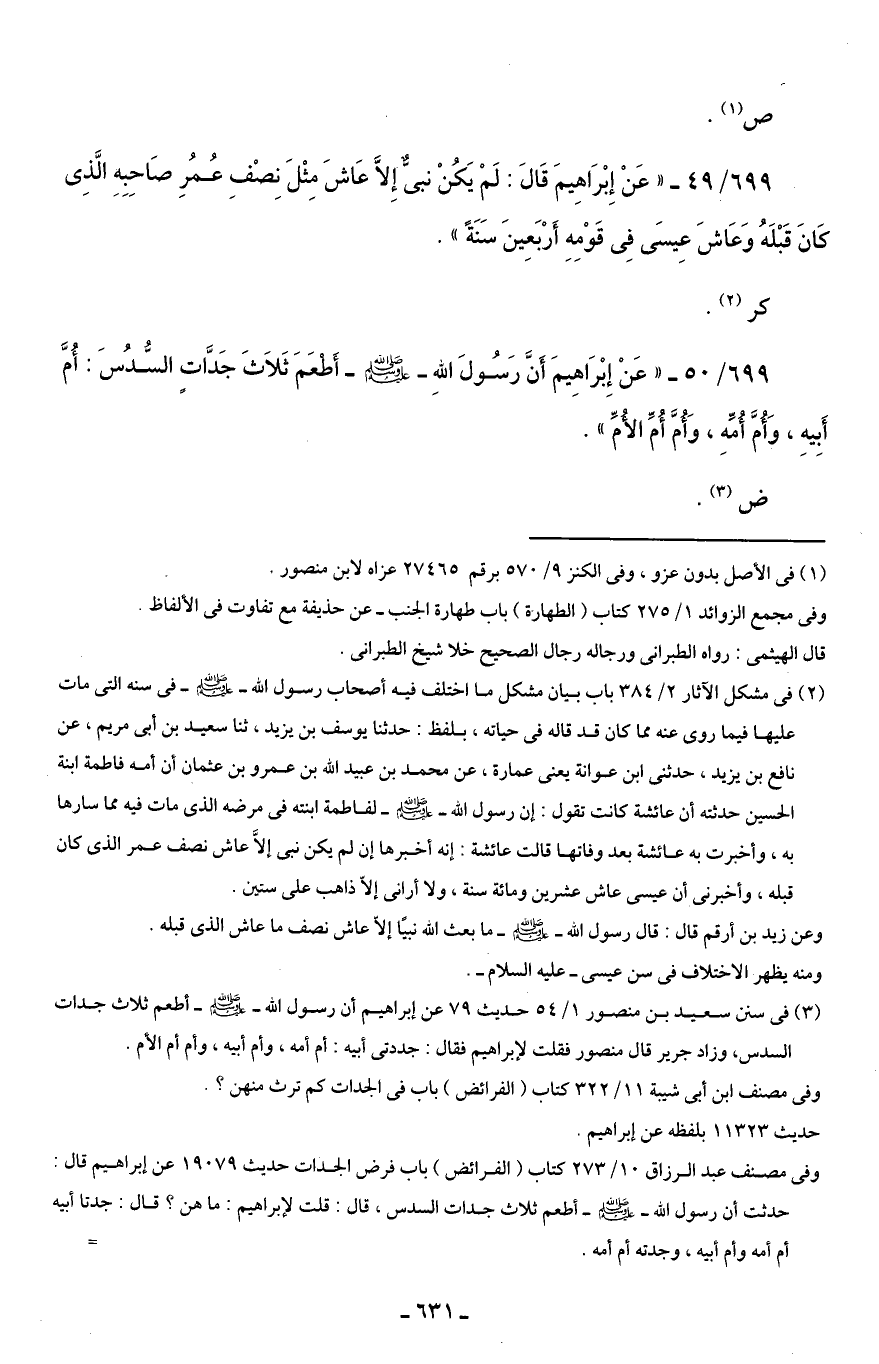 ص (١) .
٦٩٩/ ٤٩ ـ « عَنْ إِبْرَاهِيمَ قَالَ : لَمْ يَكُنْ نبىٌّ إِلاَّ عَاشَ مِثْلَ نِصْفِ عُمُرِ صَاحِبِهِ الَّذِى
كَانَ قَبْلَهُ وَعَاشَ عِيسَى فِى قَوْمِهِ أَرْبَعِينَ سَنَةً » .
كر (٢) .
٦٩٩/ ٥٠ ـ « عَنْ إِبْرَاهِيمَ أَنَّ رَسُولَ اللهِ ـ ﷺ ـ أَطْعَمَ ثَلاَثَ جَدَّاتٍ السُّدُسَ : أُمَّ
أَبِيهِ ، وَأُمَّ أُمِّهِ ، وَأُمَّ أُمِّ الأُمِّ » .
ض (٣) .
(١) فى الأصل بدون عزو ، وفى الكنز ٩/ ٥٧٠ برقم ٢٧٤٦٥ عزاه لابن منصور .
وفى مجمع الزوائد ١/ ٢٧٥ كتاب ( الطهارة ) باب طهارة الجنب ـ عن حذيفة مع تفاوت فى الألفاظ .
قال الهيثمى : رواه الطبرانى ورجاله رجال الصحيح خلا شيخ الطبرانى .
(٢) فى مشكل الآثار ٢/ ٣٨٤ باب بيان مشكل ما اختلف فيه أصحاب رسول الله ـ ﷺ ـ فى سنه التى مات
عليها فيما روى عنه مما كان قد قاله فى حياته ، بلفظ : حدثنا يوسف بن يزيد ، ثنا سعيد بن أبى مريم ، عن
نافع بن يزيد ، حدثنى ابن عوانة يعنى عمارة ، عن محمد بن عبيد الله بن عمرو بن عثمان أن أمه فاطمة ابنة
الحسين حدثته أن عائشة كانت تقول : إن رسول الله ـ ﷺ ـ لفاطمة ابنته فى مرضه الذى مات فيه مما سارها
به ، وأخبرت به عائشة بعد وفاتها قالت عائشة : إنه أخبرها إن لم يكن نبى إلاَّ عاش نصف عمر الذى كان
قبله ، وأخبرنى أن عيسى عاش عشرين ومائة سنة ، ولا أرانى إلاّ ذاهب على ستين .
وعن زيد بن أرقم قال : قال رسول الله ـ ﷺ ـ ما بعث الله نبيًا إلاّ عاش نصف ما عاش الذى قبله .
ومنه يظهر الاختلاف فى سن عيسى ـ عليه السلام ـ .
(٣) فى سنن سعيد بن منصور ١/ ٥٤ حديث ٧٩ عن إبراهيم أن رسول الله ـ ﷺ ـ أطعم ثلاث جدات
السدس، وزاد جرير قال منصور فقلت لإبراهيم فقال : جددتى أبيه : أم أمه ، وأم أبيه ، وأم أم الأم .
وفى مصنف ابن أبى شيبة ١١/ ٣٢٢ كتاب ( الفرائض ) باب فى الجدات كم ترث منهن ؟ .
حديث ١١٣٢٣ بلفظه عن إبراهيم .
وفى مصنف عبد الرزاق ١٠/ ٢٧٣ كتاب ( الفرائض ) باب فرض الجدات حديث ١٩٠٧٩ عن إبراهيم قال :
حدثت أن رسول الله ـ ﷺ ـ أطعم ثلاث جدات السدس ، قال : قلت لإبراهيم : ما هن ؟ قال : جدتا أبيه
أم أمه وأم أبيه ، وجدته أم أمه .
=
ـ ٦٣١ ـ